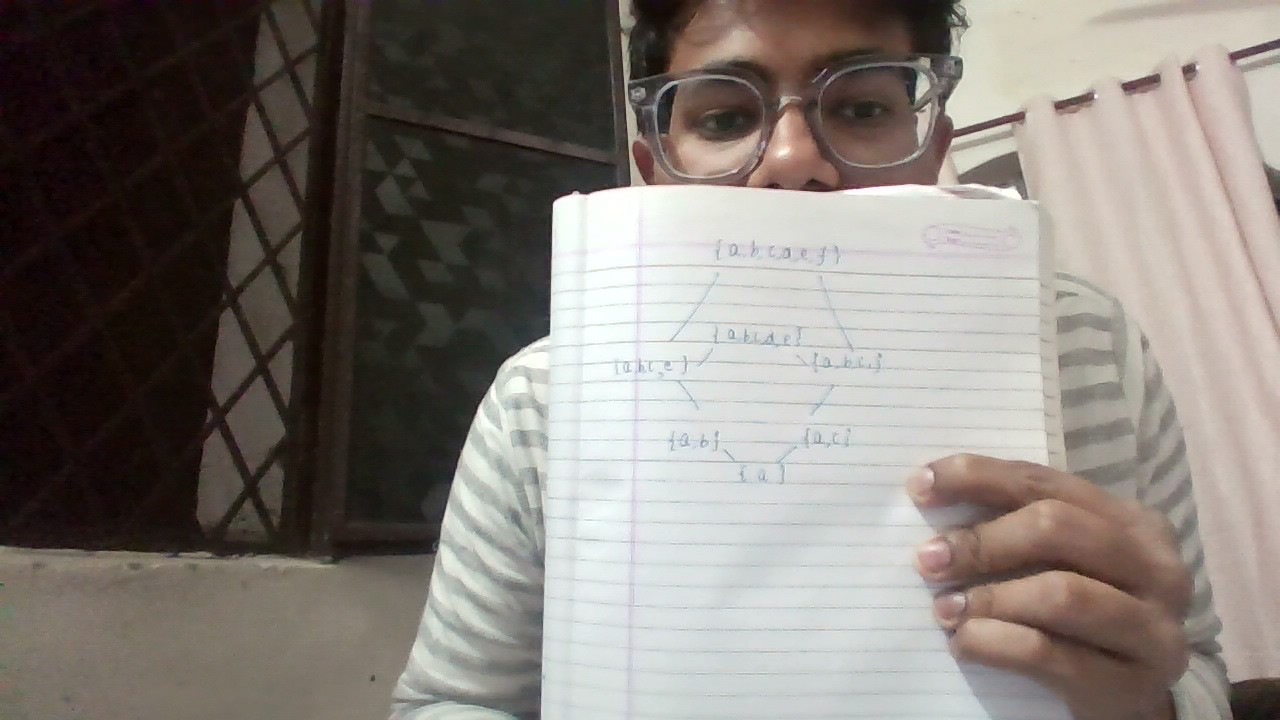 {a,b,c,d,e,f}
{a,b,c,d,e}
{a,b,c,e}
{a,b} {a,c}
{a}